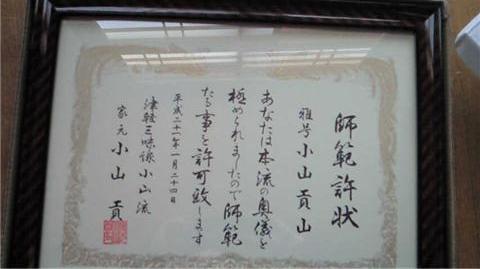 師範許状
雅号 小山貢山
あなたは本流の奥儀を
極められましたので師範
たる事を許可致します
平成二十一年一月二十四日
津軽三味線小山流
家元 小山 貢